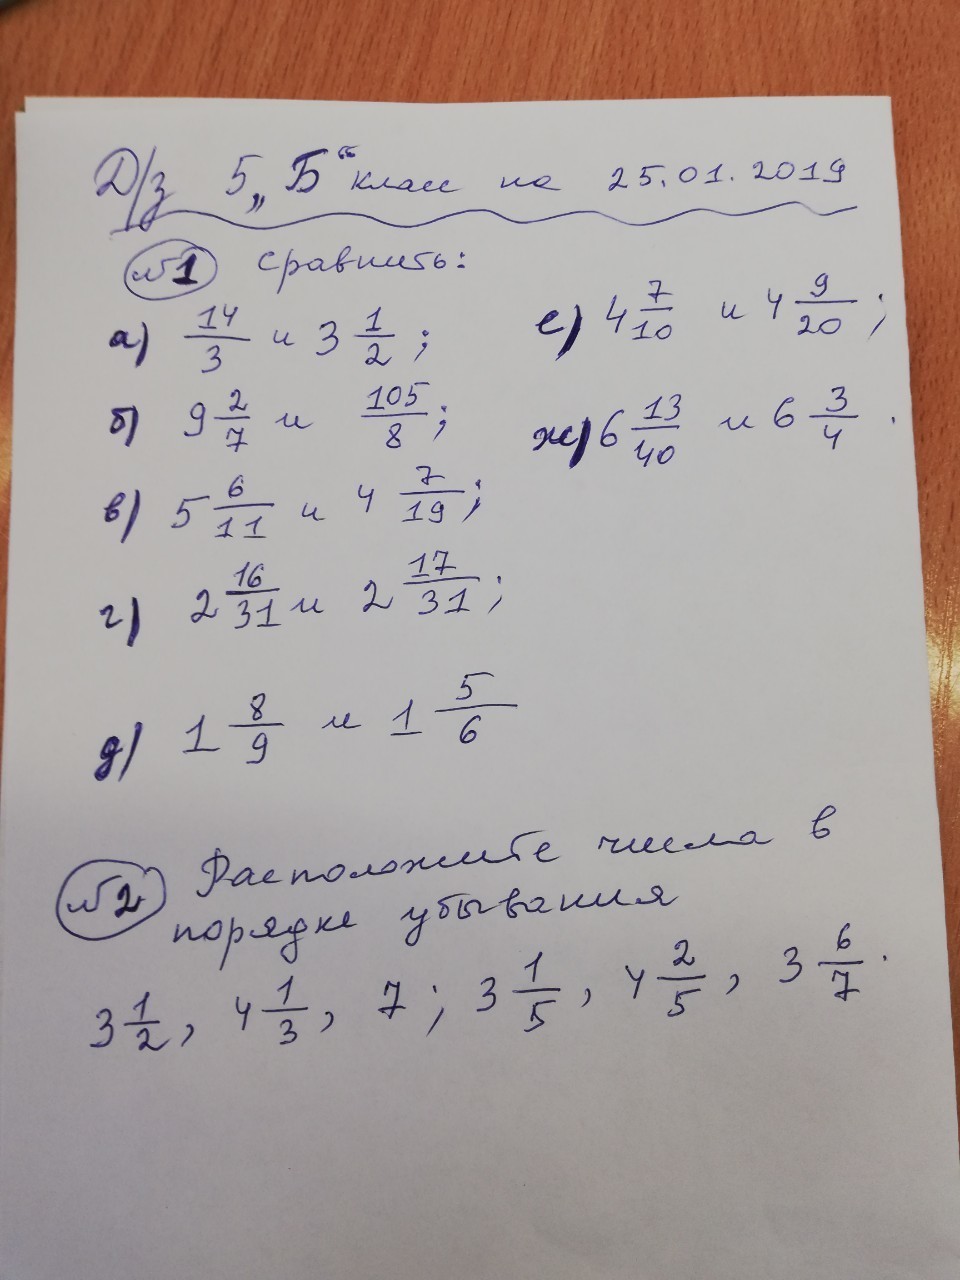 Д/з 5 „Б“ класс на 25.01.2019
№1 Сравнить:
а) 14/3 и 3 1/2;
б) 9 2/7 и 105/8;
в) 5 6/11 и 4 7/19;
г) 2 16/31 и 2 17/31;
д) 1 8/9 и 1 5/6
е) 4 7/10 и 4 9/20;
ж) 6 13/40 и 6 3/4.
№2 Расположите числа в
порядке убывания
3 1/2, 4 1/3, 7; 3 1/5, 4 2/5, 3 6/7.